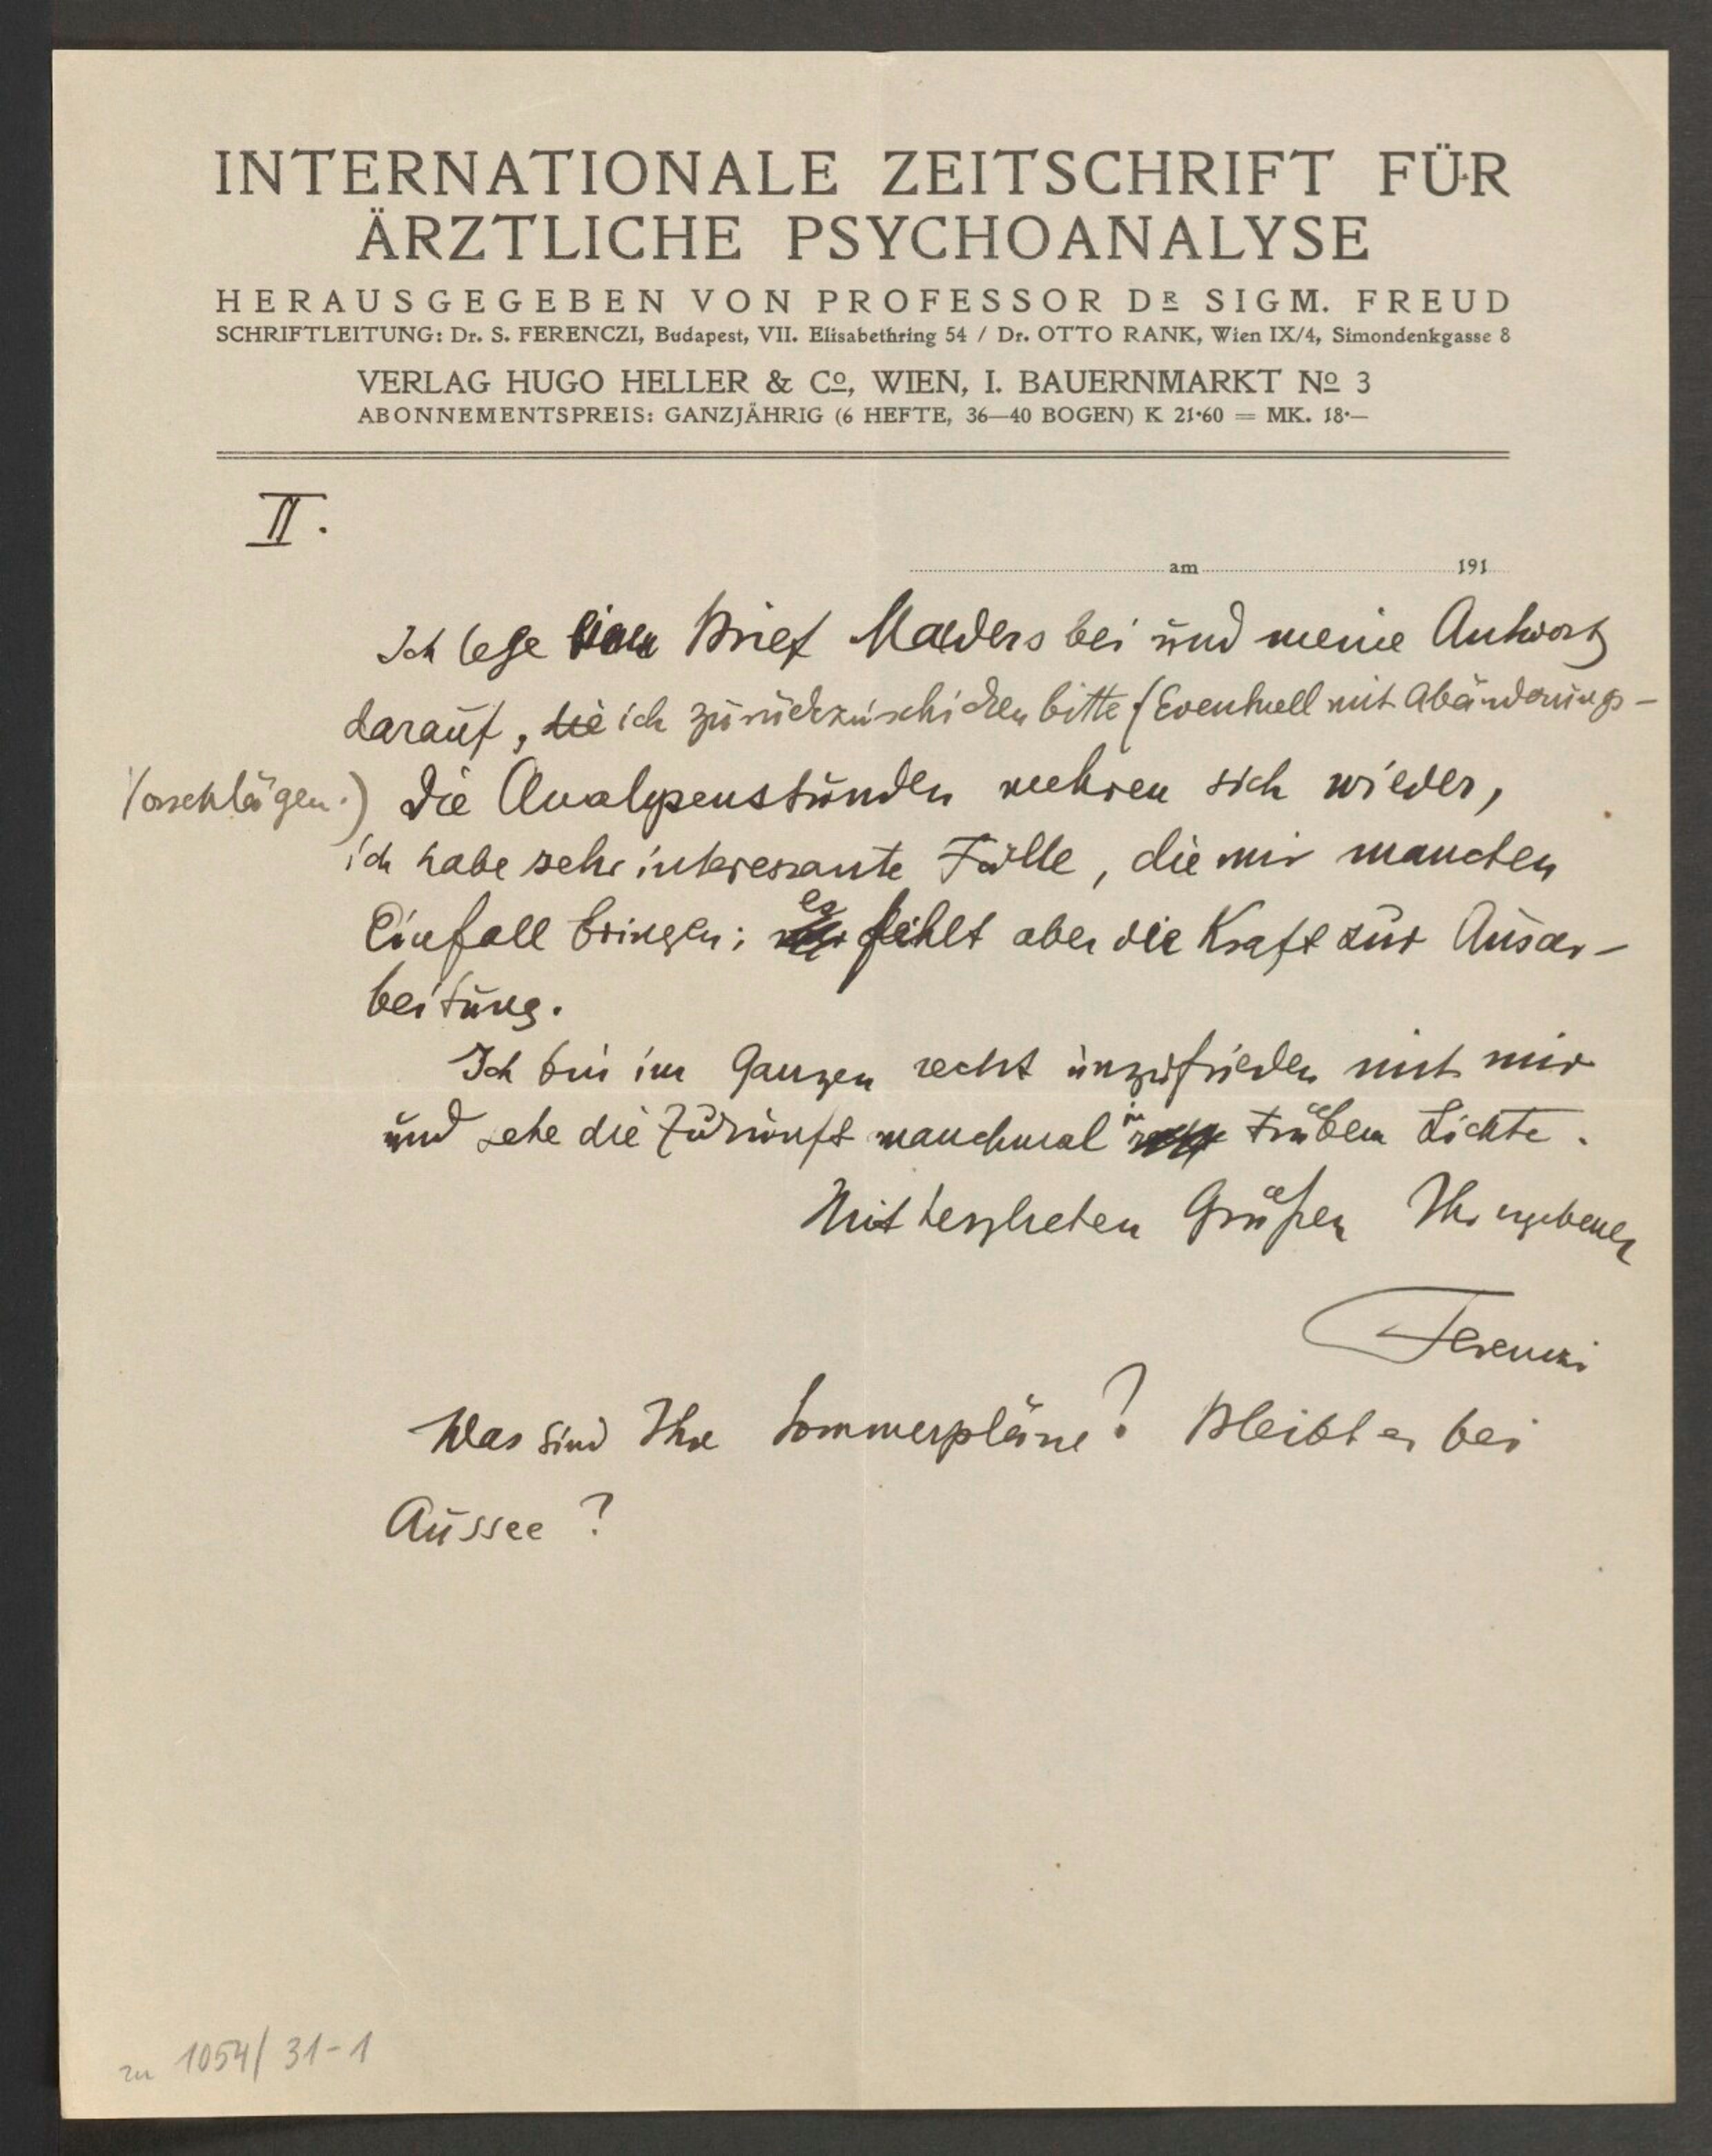 INTERNATIONALE ZEITSCHRIFT FÜR
ÄRZTLICHE PSYCHOANALYSE
HERAUSGEGEBEN VON PROFESSOR DR SIGM. FREUD
SCHRIFTLEITUNG: Dr. S. FERENCZI, Budapest, VII. Elisabethring 54 / Dr. OTTO RANK, Wien IX/4, Simondenkgasse 8
VERLAG HUGO HELLER & Co, WIEN, I. BAUERNMARKT No 3
ABONNEMENTSPREIS: GANZJÄHRIG (6 HEFTE, 36—40 BOGEN) K 21·60 = MK. 18·—
II.
am 191
Ich lege Brief Maeders bei und meine Antwort
darauf, die ich zurückzuschicken bitte (Eventuell mit Abänderungs-
Vorschlägen.) Die Analysenstunden mehren sich wieder,
ich habe sehr interessante Fälle, die mir manchen
Einfall bringen; es fehlt aber die Kraft zur Ausar-
beitung.
Ich bin im Ganzen recht unzufrieden mit mir
und sehe die Zukunft manchmal in trübem Lichte.
Mit herzlichen Grüßen Ihr ergebener
Ferenczi
Was sind Ihre Sommerpläne? Bleibt es bei
Aussee?
zu 1054/31-1